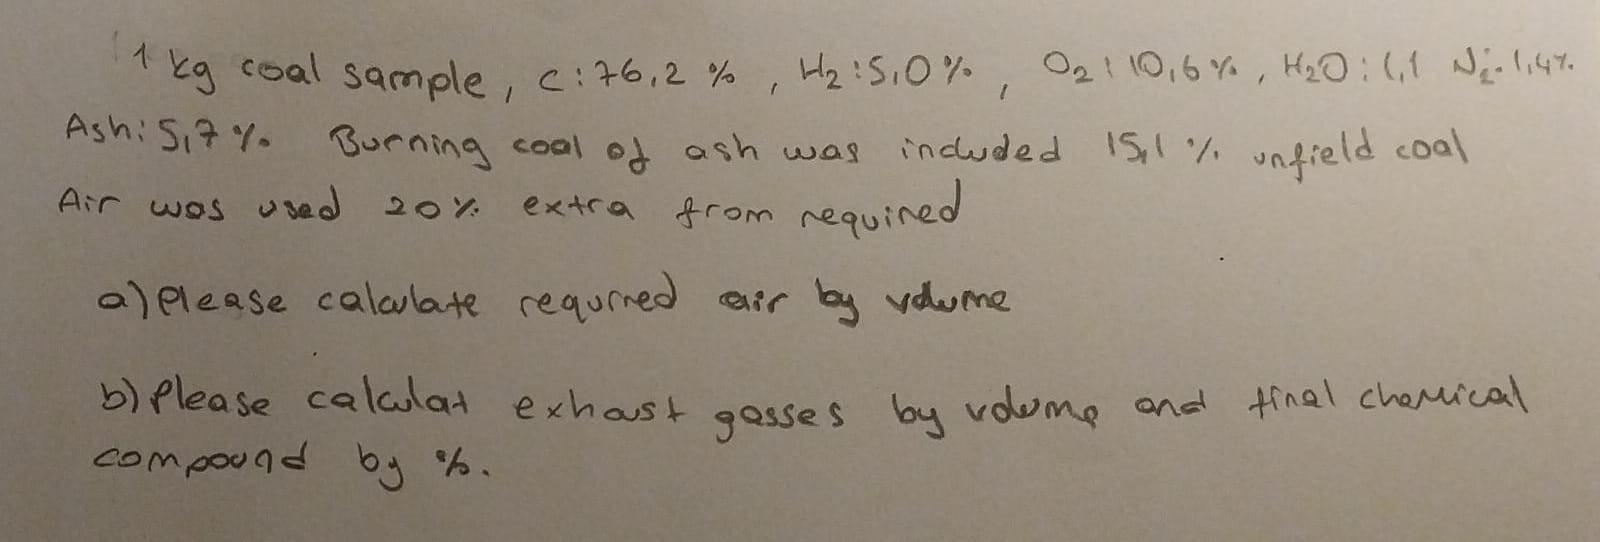 1 kg coal sample, C:76,2 %, H2:5,0%, O2:10,6%, H2O:1,1 N2:1,4%.
Ash:5,7%. Burning coal of ash was included 15,1 % unfield coal
Air was used 20% extra from required
a) Please calculate requrred air by volume
b) Please calculat exhaust gasses by volume and final chemical
compound by %.